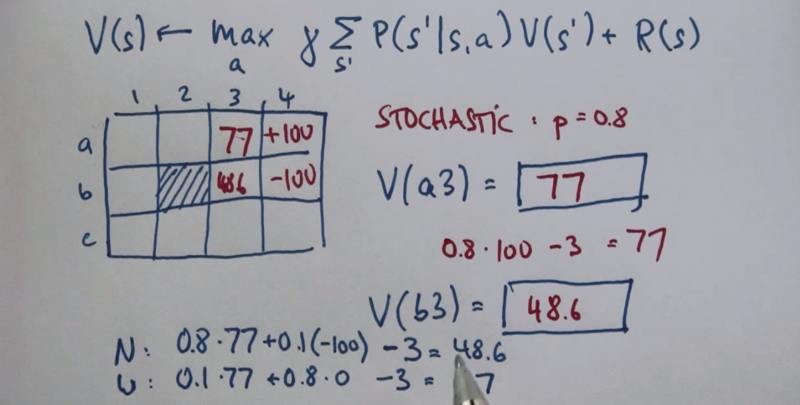 V(s) ← max a γ Σ s' P(s'|s,a) V(s') + R(s)
1 2 3 4
a 77 +100
b 48.6 -100
c
STOCHASTIC : p = 0.8
V(a3) = 77
0.8 · 100 - 3 = 77
V(b3) = 48.6
N: 0.8 · 77 + 0.1(-100) - 3 = 48.6
W: 0.1 · 77 + 0.8 · 0 - 3 = 7